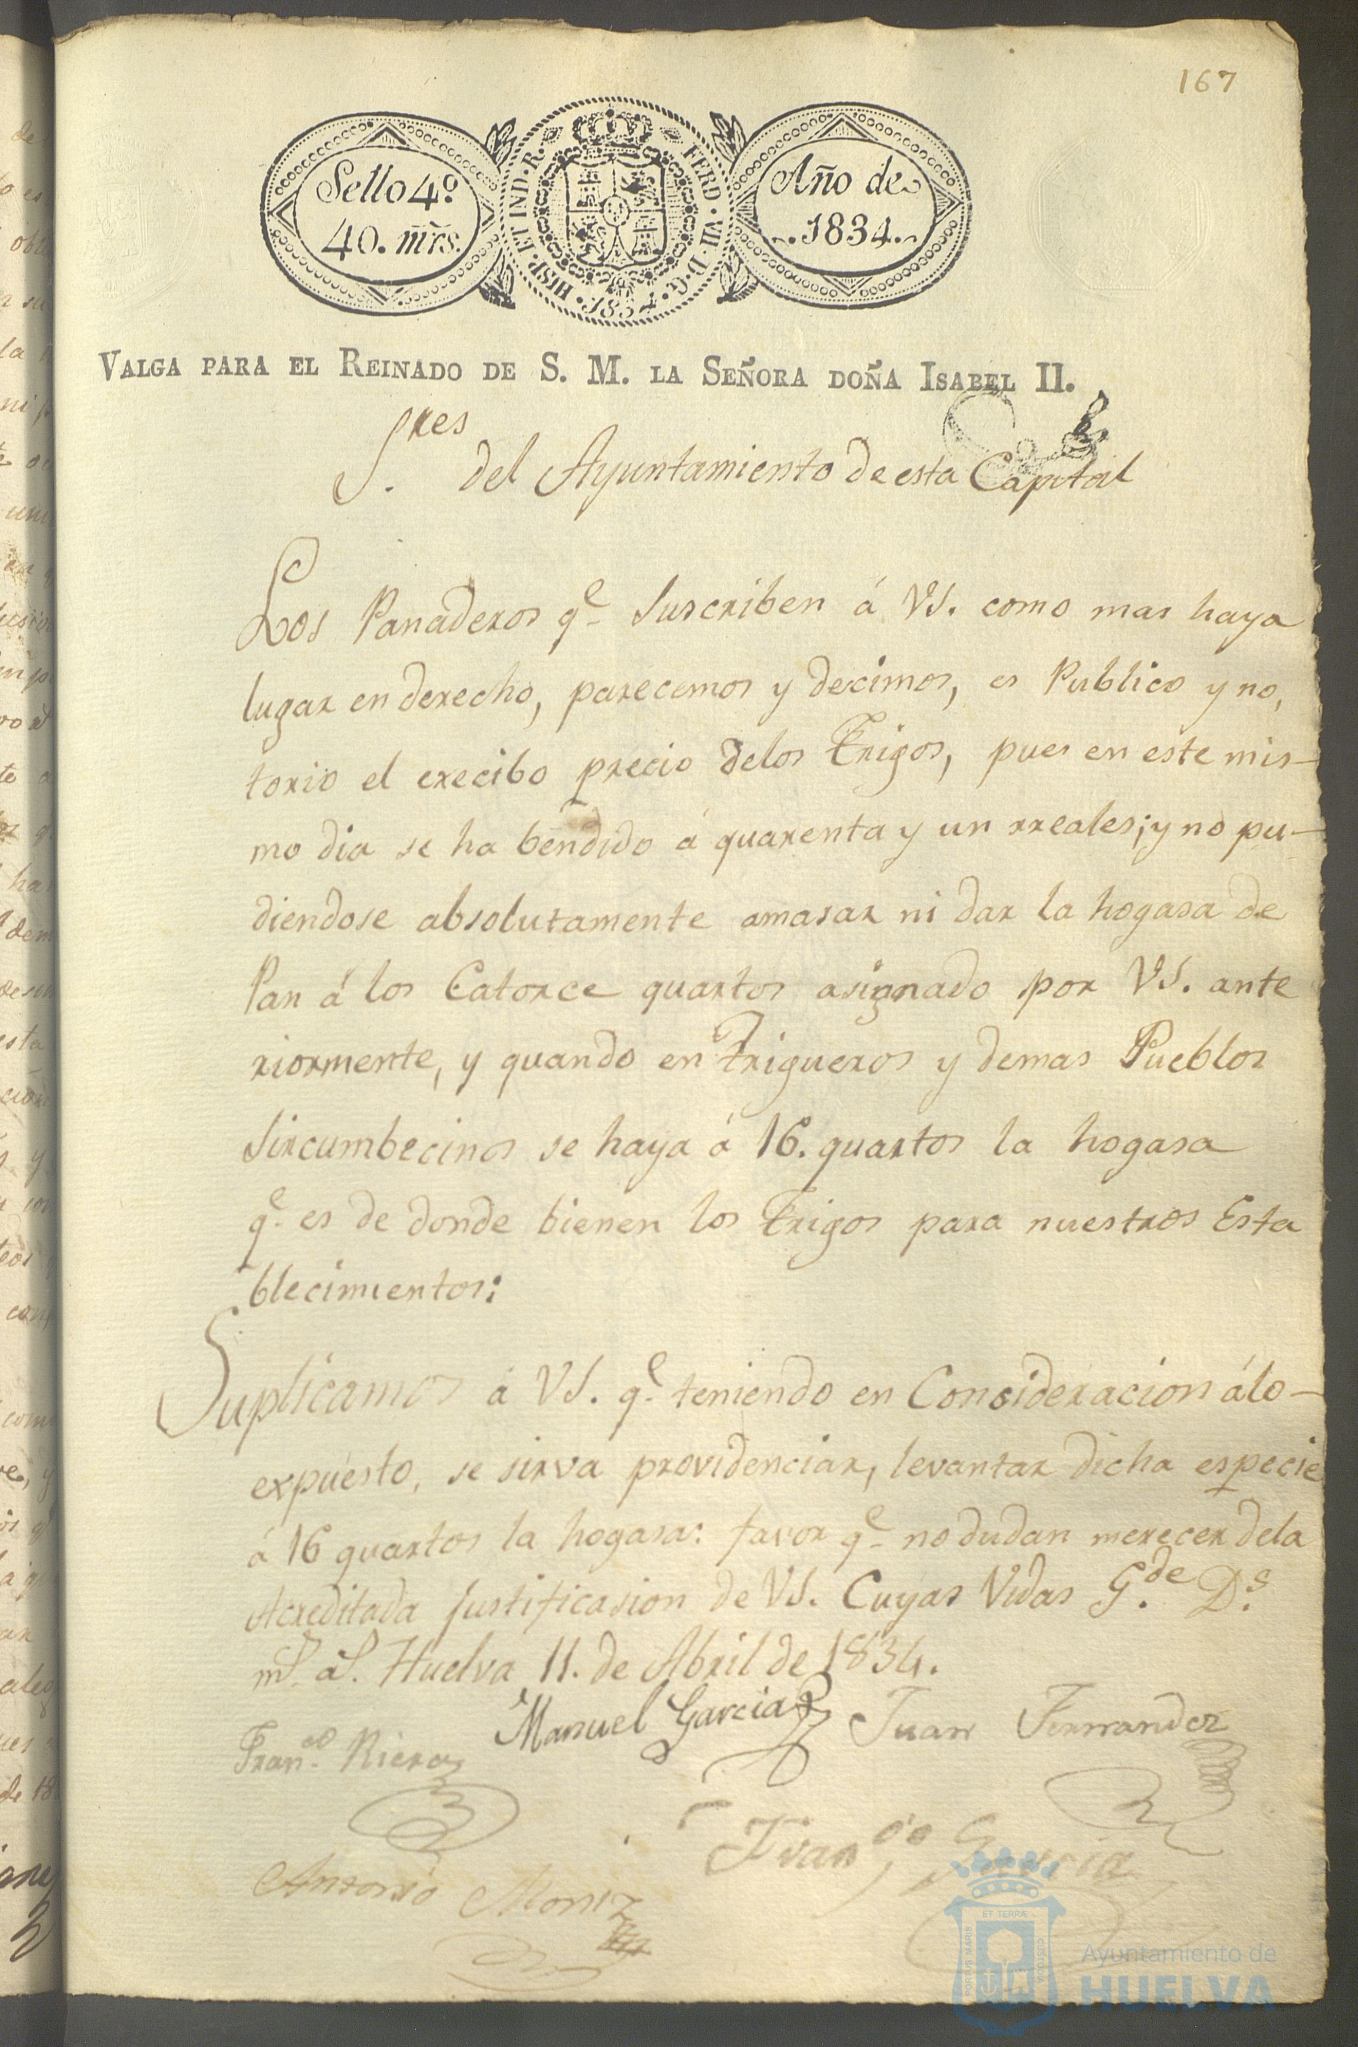 167
Sello 4º
40. mr̃s.
HISP. ET IND. R. FERD. VII. D. G. 1834.
Año de
1834.
VALGA PARA EL REINADO DE S. M. LA SEÑORA DOÑA ISABEL II.
Sres. del Ayuntamiento de esta Capital
Los Panaderos qe. Suscriben á VS. como mas haya
lugar en derecho, parecemos y decimos, es Publico y no,
torio el crecibo precio delos Trigos, pues en este mis-
mo dia se ha bendido á quarenta y un rreales; y no pu-
diendose absolutamente amasar ni dar la hogasa de
Pan á los Catorce quartos asignado por VS. ante
riormente, y quando en Trigueros y demas Pueblos
Sircumbecinos se haya á 16. quartos la hogasa
qe. es de donde bienen los Trigos para nuestros Esta
blecimientos:
Suplicamos á VS. qe. teniendo en Consideracion álo-
expuesto, se sirva providenciar, levantar dicha especie
á 16 quartos la hogasa: favor qe. no dudan merecer dela
Acreditada Justificasion de VS. Cuyas Vidas Gde. Ds.
ms. as. Huelva 11. de Abril de 1834.
Franco. Riera Manuel Garcia Juan Fernandez
Franco Garcia
Antonio
PORTUS MARIS ET TERRÆ CUSTODIA
Ayuntamiento de
HUELVA